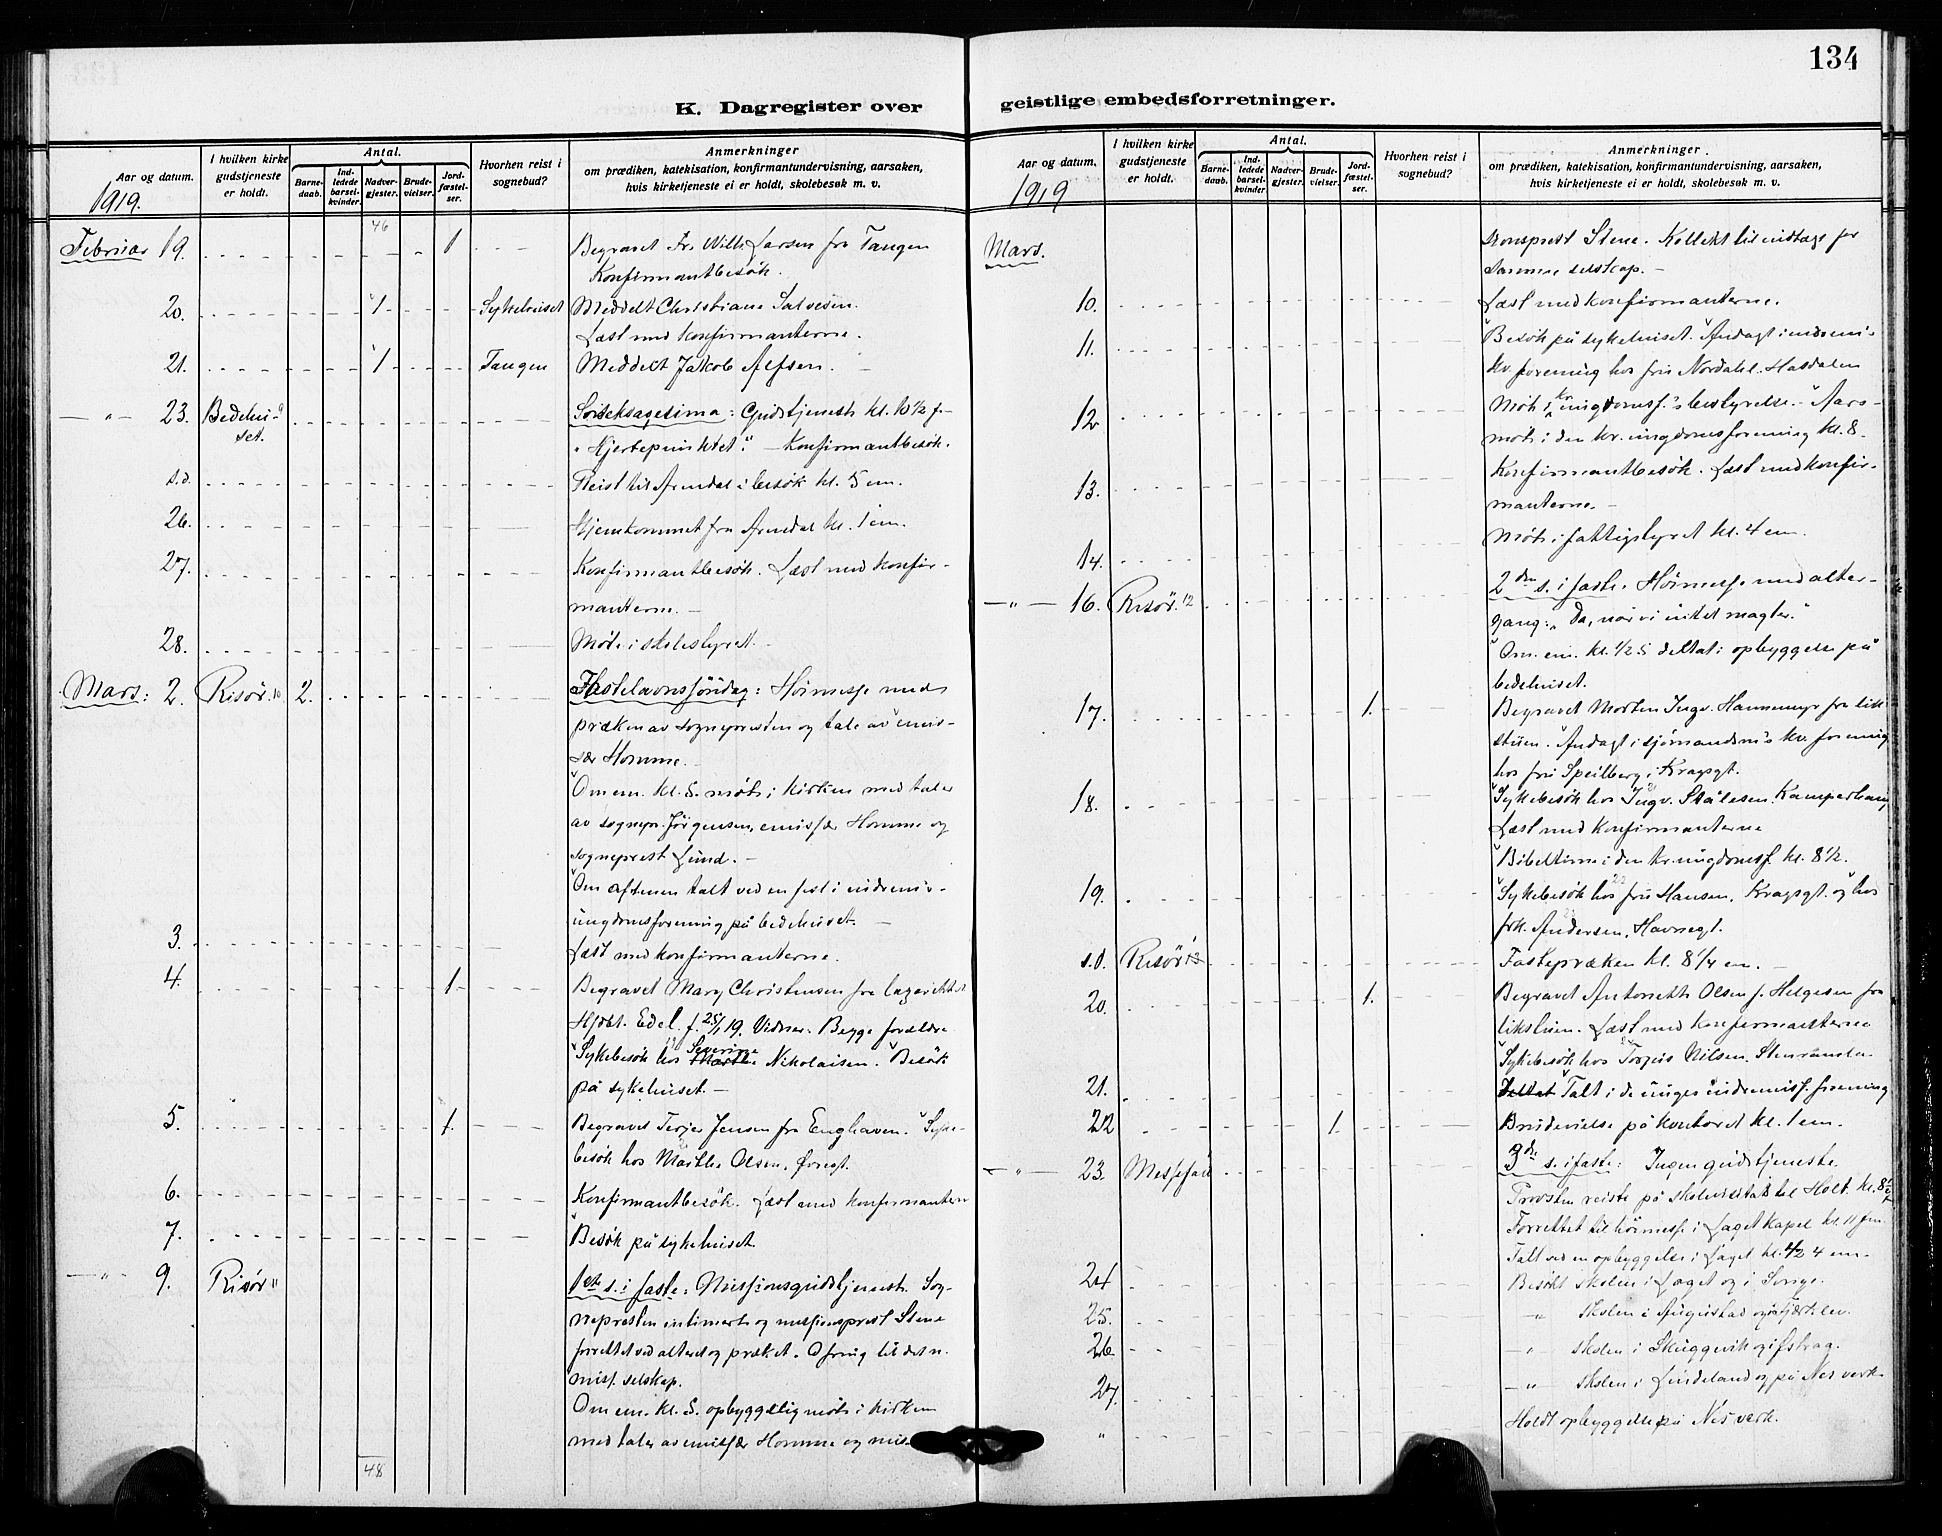 134
K. Dagregister over geistlige embedsforretninger.
Aar og datum.
1919.
I hvilken kirke gudstjeneste er holdt.
Antal.
Barnedaab.
Indledede barselkvinder.
Nadvergjester.
Brudevielser.
Jordfæstelser.
Hvorhen reist i sognebud?
Anmerkninger
om prædiken, katekisation, konfirmantundervisning, aarsaken,
hvis kirketjeneste ei er holdt, skolebesøk m. v.
46
Februar 19. 1 Begravet Fr. Wilh. Larsen fra Tangen
Konfirmantbesök.
20. 1 Sykehuset Meddelt Christiane Salvesen.
Læst med konfirmanterne.
21. 1 Tangen Meddelt Jakob Alfsen.
— " — 23. Bedehuset. Sexagesima: Gudstjeneste kl. 10 ½ f.
"Hjertepunktet". — Konfirmantbesök.
s.d. Reist til Arendal i besök kl. 5 em.
26. Hjemkommet fra Arendal kl. 1 em.
27. Konfirmantbesök. Læst med konfirmanterne. —
28. Möte i skolestyret. —
Mars: 2. Risör. 10 2. Fastelavnssöndag: Höimesse med
præken av sognepresten og tale av emissær Homme.
Om em. kl. 5. möte i kirken med taler
av sognepr. Jörgensen, emissær Homme og
sogneprest Lund. —
Om aftenen talt ved en fest i indremis-
ungdomsforening på bedehuset. —
3. Læst med konfirmanterne.
4. 1. Begravet Mary Christensen fra lazarettet
Hjdbt. Edel f. 25/1 19. Vidner: Begge forældre.
Sykebesök hos Severine Nikolaisen. Besök
på sykehuset. —
5. 1. Begravet Terjer Jensen fra Enghaven. Sykebesök hos Marthe Olsen, Övregt.
6. Konfirmantbesök. Læst med konfirmanterne
7. Besök på sykehuset.
— " — 9. Risör 11 1ste s. i faste: Missionsgudstjeneste. Sognepresten intimerte og missionsprest Stene
forrettet ved alteret og præket. Ofring til det n.
miss. selskap.
Om em. kl. 5. opbyggelig möte i kirken
med taler av emissær Homme og mis-
48
Aar og datum.
1919
I hvilken kirke gudstjeneste er holdt.
Antal.
Barnedaab.
Indledede barselkvinder.
Nadvergjester.
Brudevielser.
Jordfæstelser.
Hvorhen reist i sognebud?
Anmerkninger
om prædiken, katekisation, konfirmantundervisning, aarsaken,
hvis kirketjeneste ei er holdt, skolebesøk m. v.
Mars. sionsprest Stene. Kollekt til indtægt for
samme selskap. —
10. Læst med konfirmanterne.
11. Besök på sykehuset. Andagt i indremi-
kv. forening hos fru Nordahl. Hasdalen
12 Möte i kr. ungdomsf.'s bestyrelse. — Aarsmöte i den kr. ungdomsforening kl. 8.
13. Konfirmantbesök. Læst med konfirmanterne. —
14. Möte i fattigstyret kl. 4 em.
— " — 16. Risör. 12 2den s. i faste. Höimesse med altergang: "Da, når vi intet magter."
Om em. kl. ½ 5 deltat i opbyggelse på
bedehuset.
17. 1. Begravet Morten Ingv. Hannemyr fra likstuen. Andagt i sjömandsmis kv. forening
hos fru Speilberg i Kragsgt.
18. Sykebesök hos Ingv. Stålesen. Kamperhaug
Læst med konfirmanterne
Bibeltime i den kr. ungdomsf. kl. 8 ½.
19. Sykebesök hos fru Hansen, Kragsgt. og hos
frk. Andersen, Havnegt.
s.d. Risör Fastepræken kl. 8 ¼ em. —
20. 1. Begravet Antonette Olsen f. Helgesen fra
likstuen. Læst med konfirmanterne
Sykebesök hos Torjus Nilsen.
21. Deltat Talt i de unges indremisf. forening
22 1. Brudevielse på kontoret kl. 1 em.
— " — 23. Messefald 3de s. i faste: Ingen gudstjeneste.
Provsten reiste på skolevisitats til Holt. kl. 8 ½
Forrettet til höimesse i Laget kapel kl. 11 fm.
Talt ved en opbyggelse i Laget kl. 4 em.
24 Besökt skolen i Laget og i Songe.
25. — " — skolen i Augustad og i Fjærkleiv.
26 — " — skolen i Skuggevik og i
27. — " — skolen i Lindeland og på Nes verk.
" Holdt opbyggelse på Nes verk.